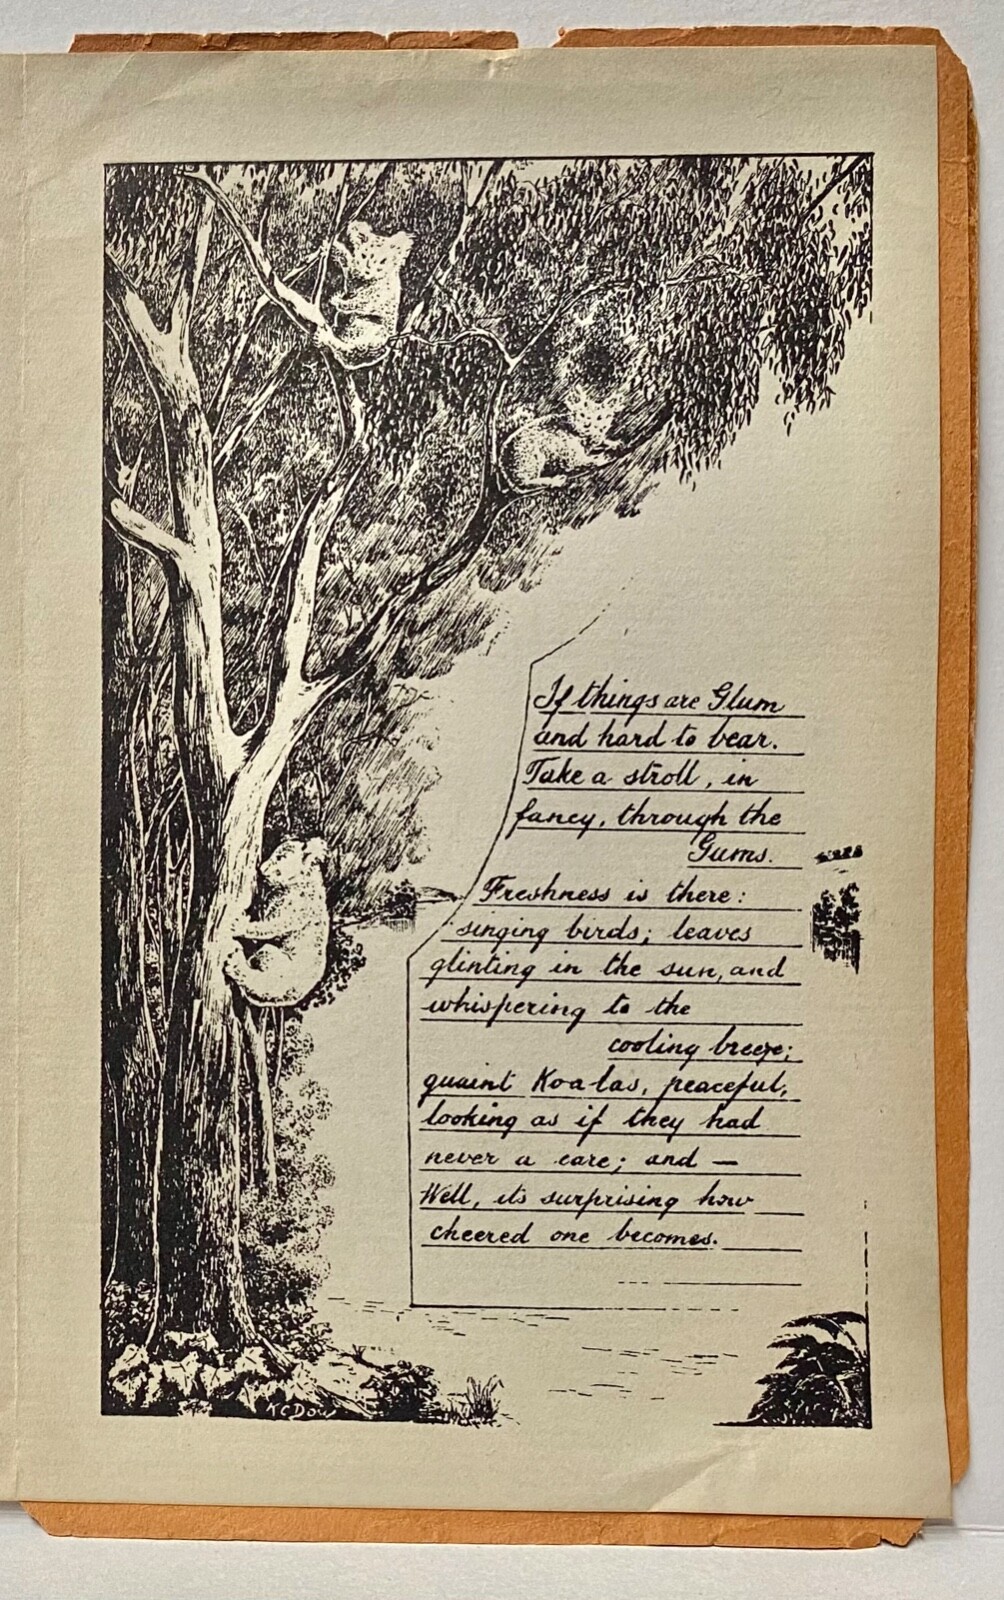 If things are Glum
and hard to bear.
Take a stroll, in
fancy, through the
Gums.
Freshness is there:
singing birds; leaves
glinting in the sun, and
whispering to the
cooling breeze;
quaint Koalas, peaceful,
looking as if they had
never a care; and —
Well, its surprising how
cheered one becomes.